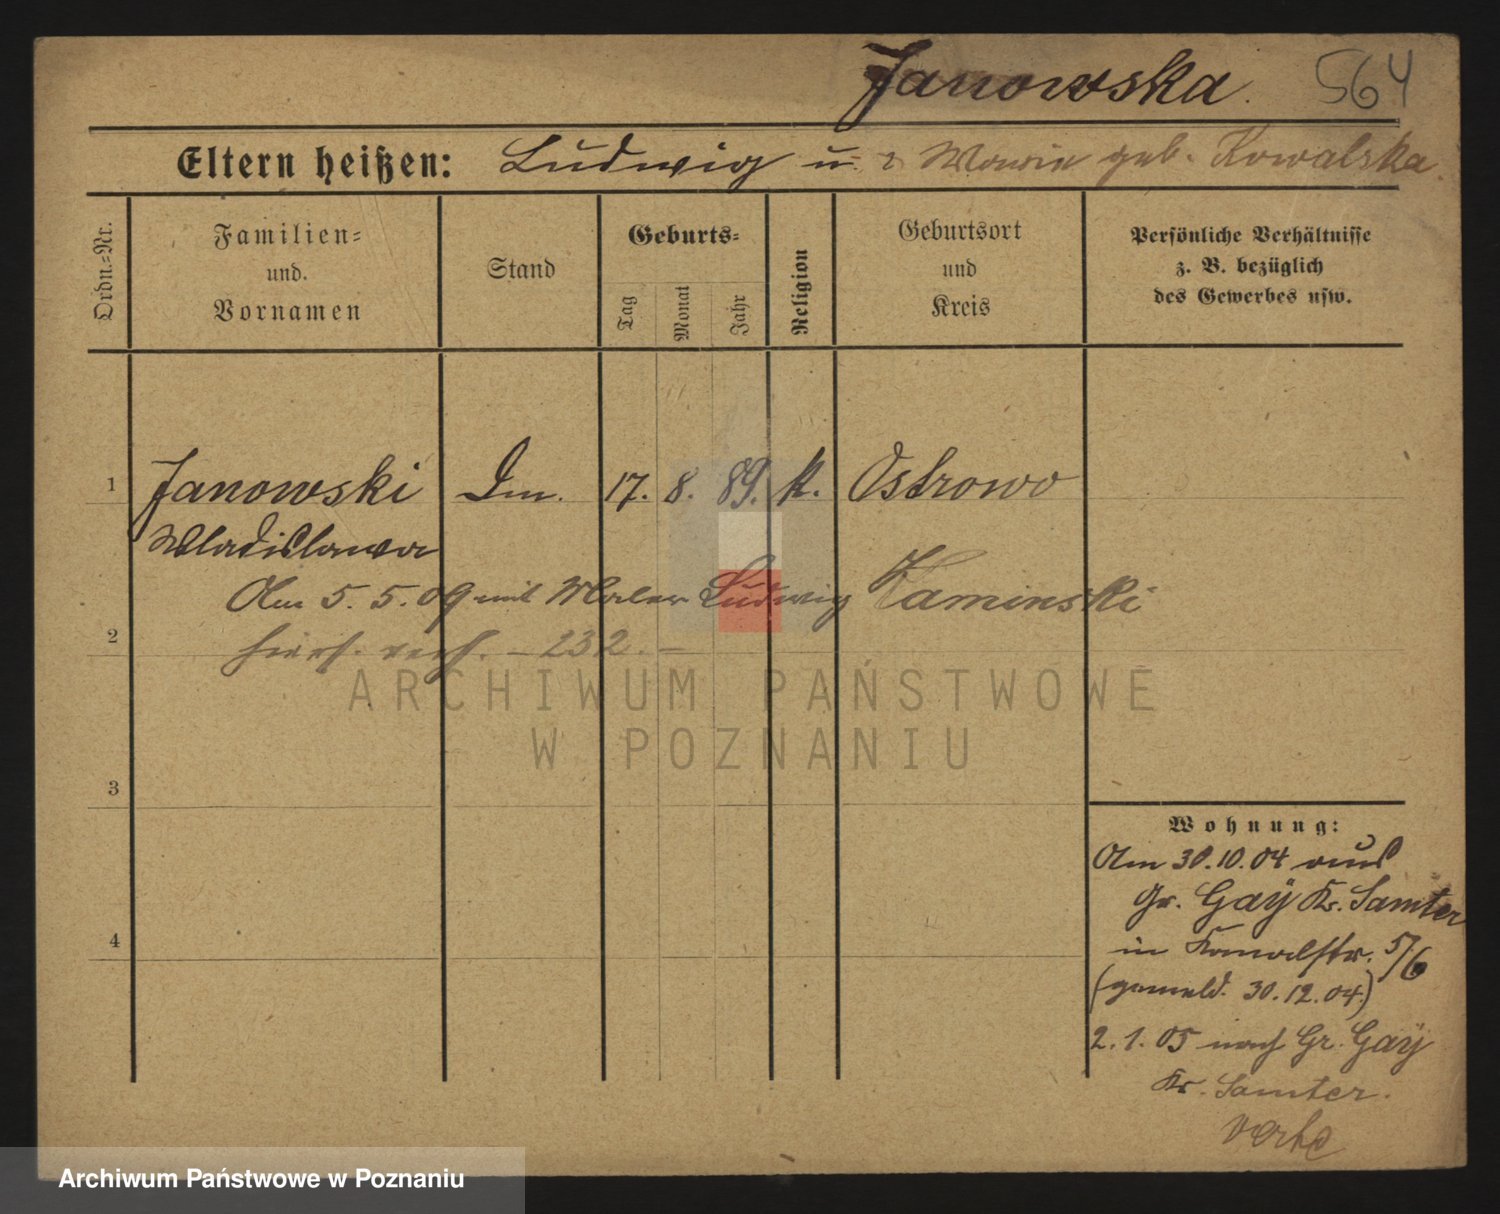 Janowska. 564
Eltern heißen: Ludwig u. Maria geb. Kowalska.
Ordn.-Nr.
Familien-
und
Vornamen
Stand
Geburts-
Tag
Monat
Jahr
Religion
Geburtsort
und
Kreis
Persönliche Verhältnisse
z. B. bezüglich
des Gewerbes usw.
1 Janowski Dm. 17. 8. 89. k. Ostrowo
Wladislawa
Am 5.5.09 mit Maler Ludwig Kaminski
2 hiers. verh. – 232. –
ARCHIWUM PAŃSTWOWE
W POZNANIU
3
4
Wohnung:
Am 30.10.04 aus
Gr. Gaÿ Kr. Samter
in Kanalstr. 5/6
(gemeld. 30.12.04.)
2.1.05 nach Gr. Gaÿ
Kr. Samter.
verte
Archiwum Państwowe w Poznaniu